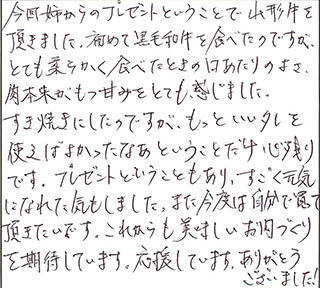 今回姉からのプレゼントということで山形牛を
頂きました。初めて黒毛和牛を食べたのですが、
とても柔らかく食べたときの口あたりのよさ、
肉本来がもつ甘みをとても感じました。
すき焼きにしたのですが、もっといいタレを
使えばよかったなあということだけ心残り
です。プレゼントということもあり、すごく元気
になれた気もしました。また今度は自分で買って
頂きたいです。これからも美味しいお肉づくり
を期待しています。応援しています。ありがとう
ございました!